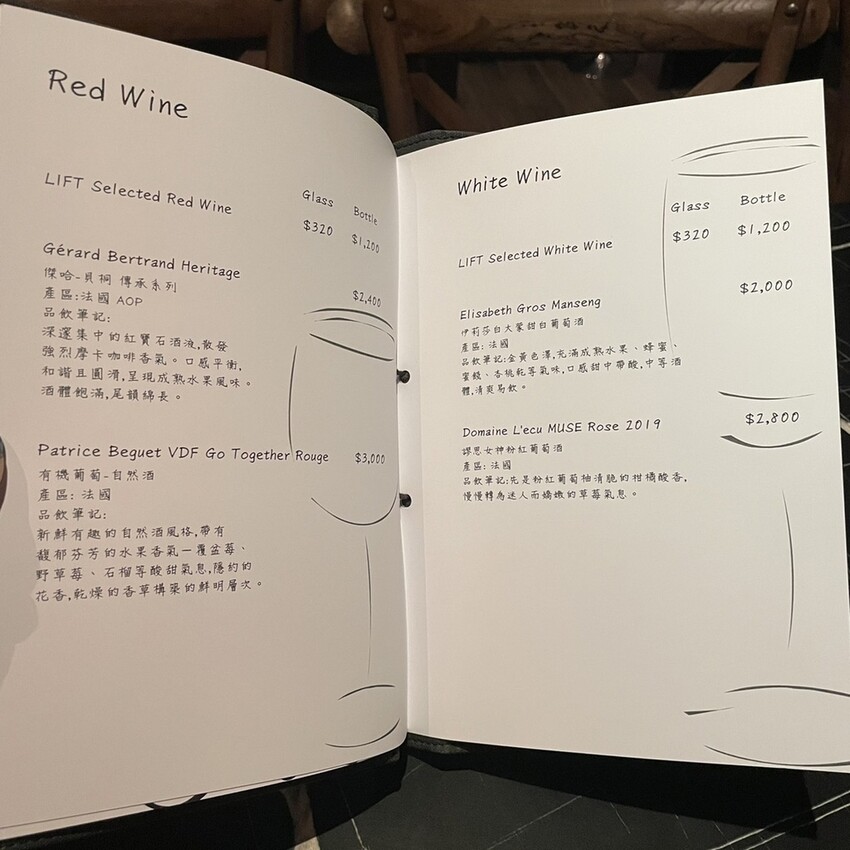 Red Wine
Glass Bottle
LIFT Selected Red Wine $320 $1,200
Gérard Bertrand Heritage $2,400
傑哈-貝桐 傳承系列
產區:法國 AOP
品飲筆記:
深邃集中的紅寶石酒液,散發
強烈摩卡咖啡香氣。口感平衡,
和諧且圓滑,呈現成熟水果風味。
酒體飽滿,尾韻綿長。
Patrice Beguet VDF Go Together Rouge $3,000
有機葡萄-自然酒
產區: 法國
品飲筆記:
新鮮有趣的自然酒風格,帶有
馥郁芬芳的水果香氣—覆盆莓、
野草莓、石榴等酸甜氣息,隱約的
花香,乾燥的香草構築的鮮明層次。
White Wine
Glass Bottle
LIFT Selected White Wine $320 $1,200
Elisabeth Gros Manseng $2,000
伊莉莎白大蒙甜白葡萄酒
產區: 法國
品飲筆記:金黃色澤,充滿成熟水果、蜂蜜、
蜜餞、杏桃乾等氣味,口感甜中帶酸,中等酒
體,清爽易飲。
Domaine L'ecu MUSE Rose 2019 $2,800
謬思女神粉紅葡萄酒
產區: 法國
品飲筆記:先是粉紅葡萄柚清脆的柑橘酸香,
慢慢轉為迷人而嬌嫩的草莓氣息。